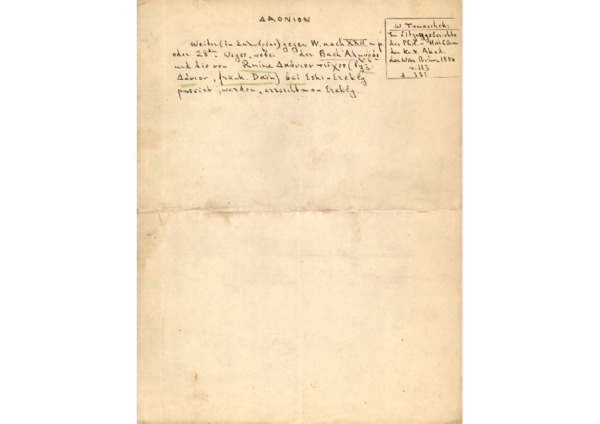 ΔΑΟΝΙΟΝ
Weiter (in Sakulpino) gegen W. nach XXII m.p.
oder 28 km Weges, wobei der Bach
und die von Ruine Δαόνιον τεῖχος (byz.
Δάνιον, fränk. Dain) bei Eski-Erekly
passirt werden, erreicht man Erekly.
W. Tomaschek:
In Sitzungsberichte
der Phil. - Hist. Classe
der K. K. Akad.
der Wiss. Bd. 1886
v. 113
s. 331